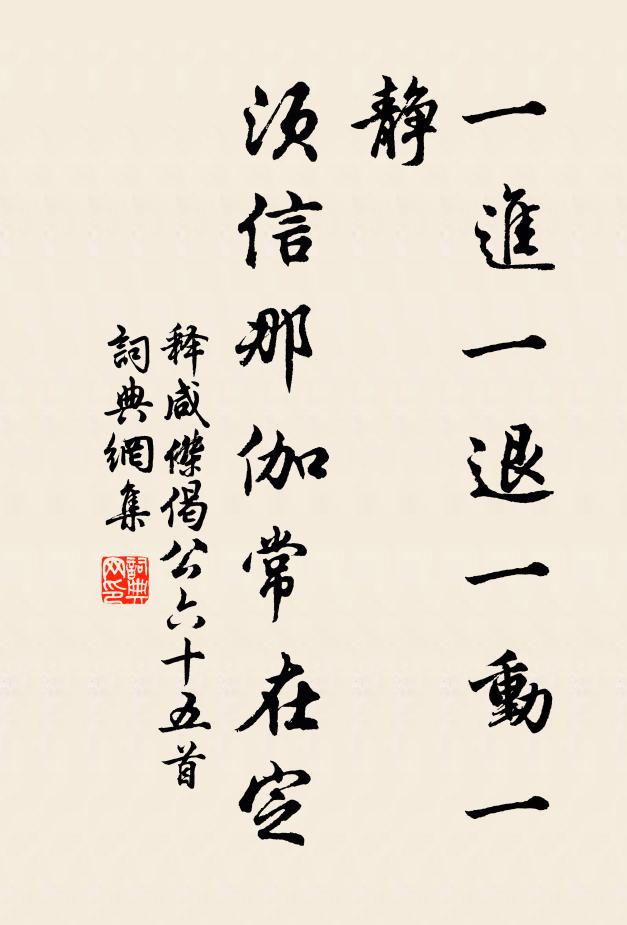 一進一退一動一
靜
須信那伽常在定
释咸傑偈公六十五首
詞典網集
詞典网印